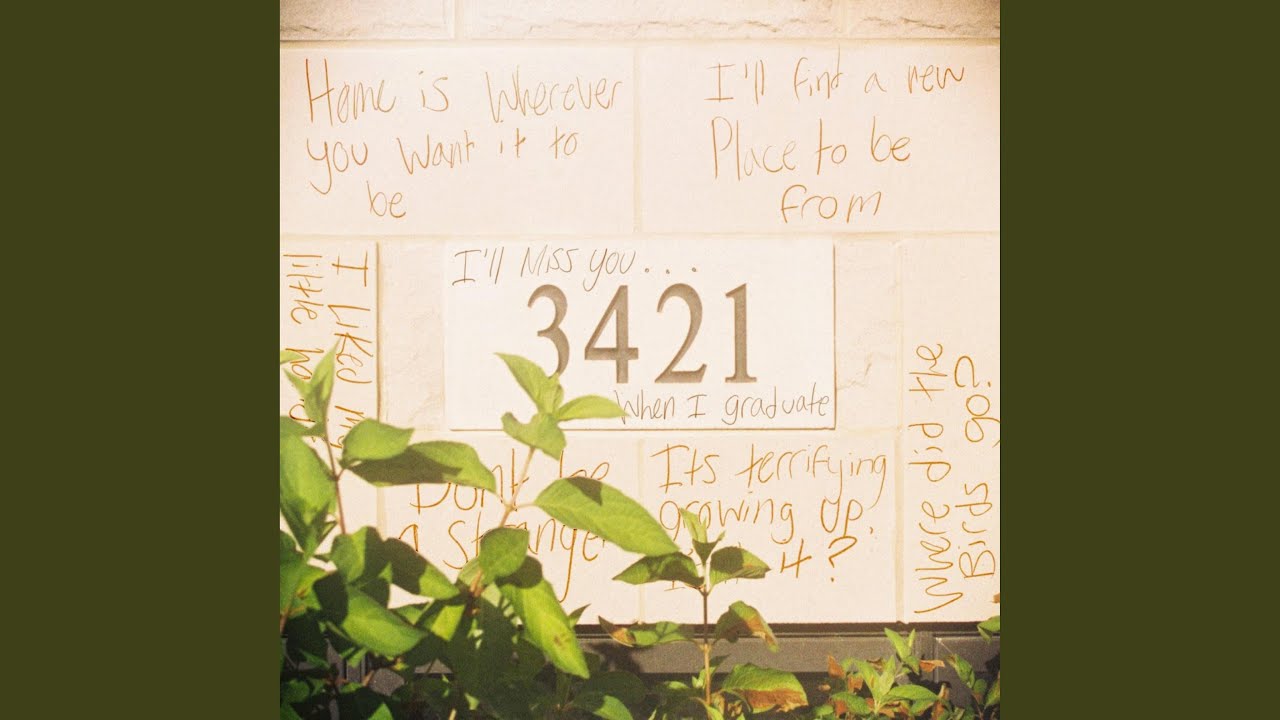 Home is Wherever
you want it to
be
I'll find a new
Place to be
from
I liked my
little
I'll Miss you...
3421
When I graduate
Dont be
a Stranger
Its terrifying
growing up,
it?
Where did the
Birds go?